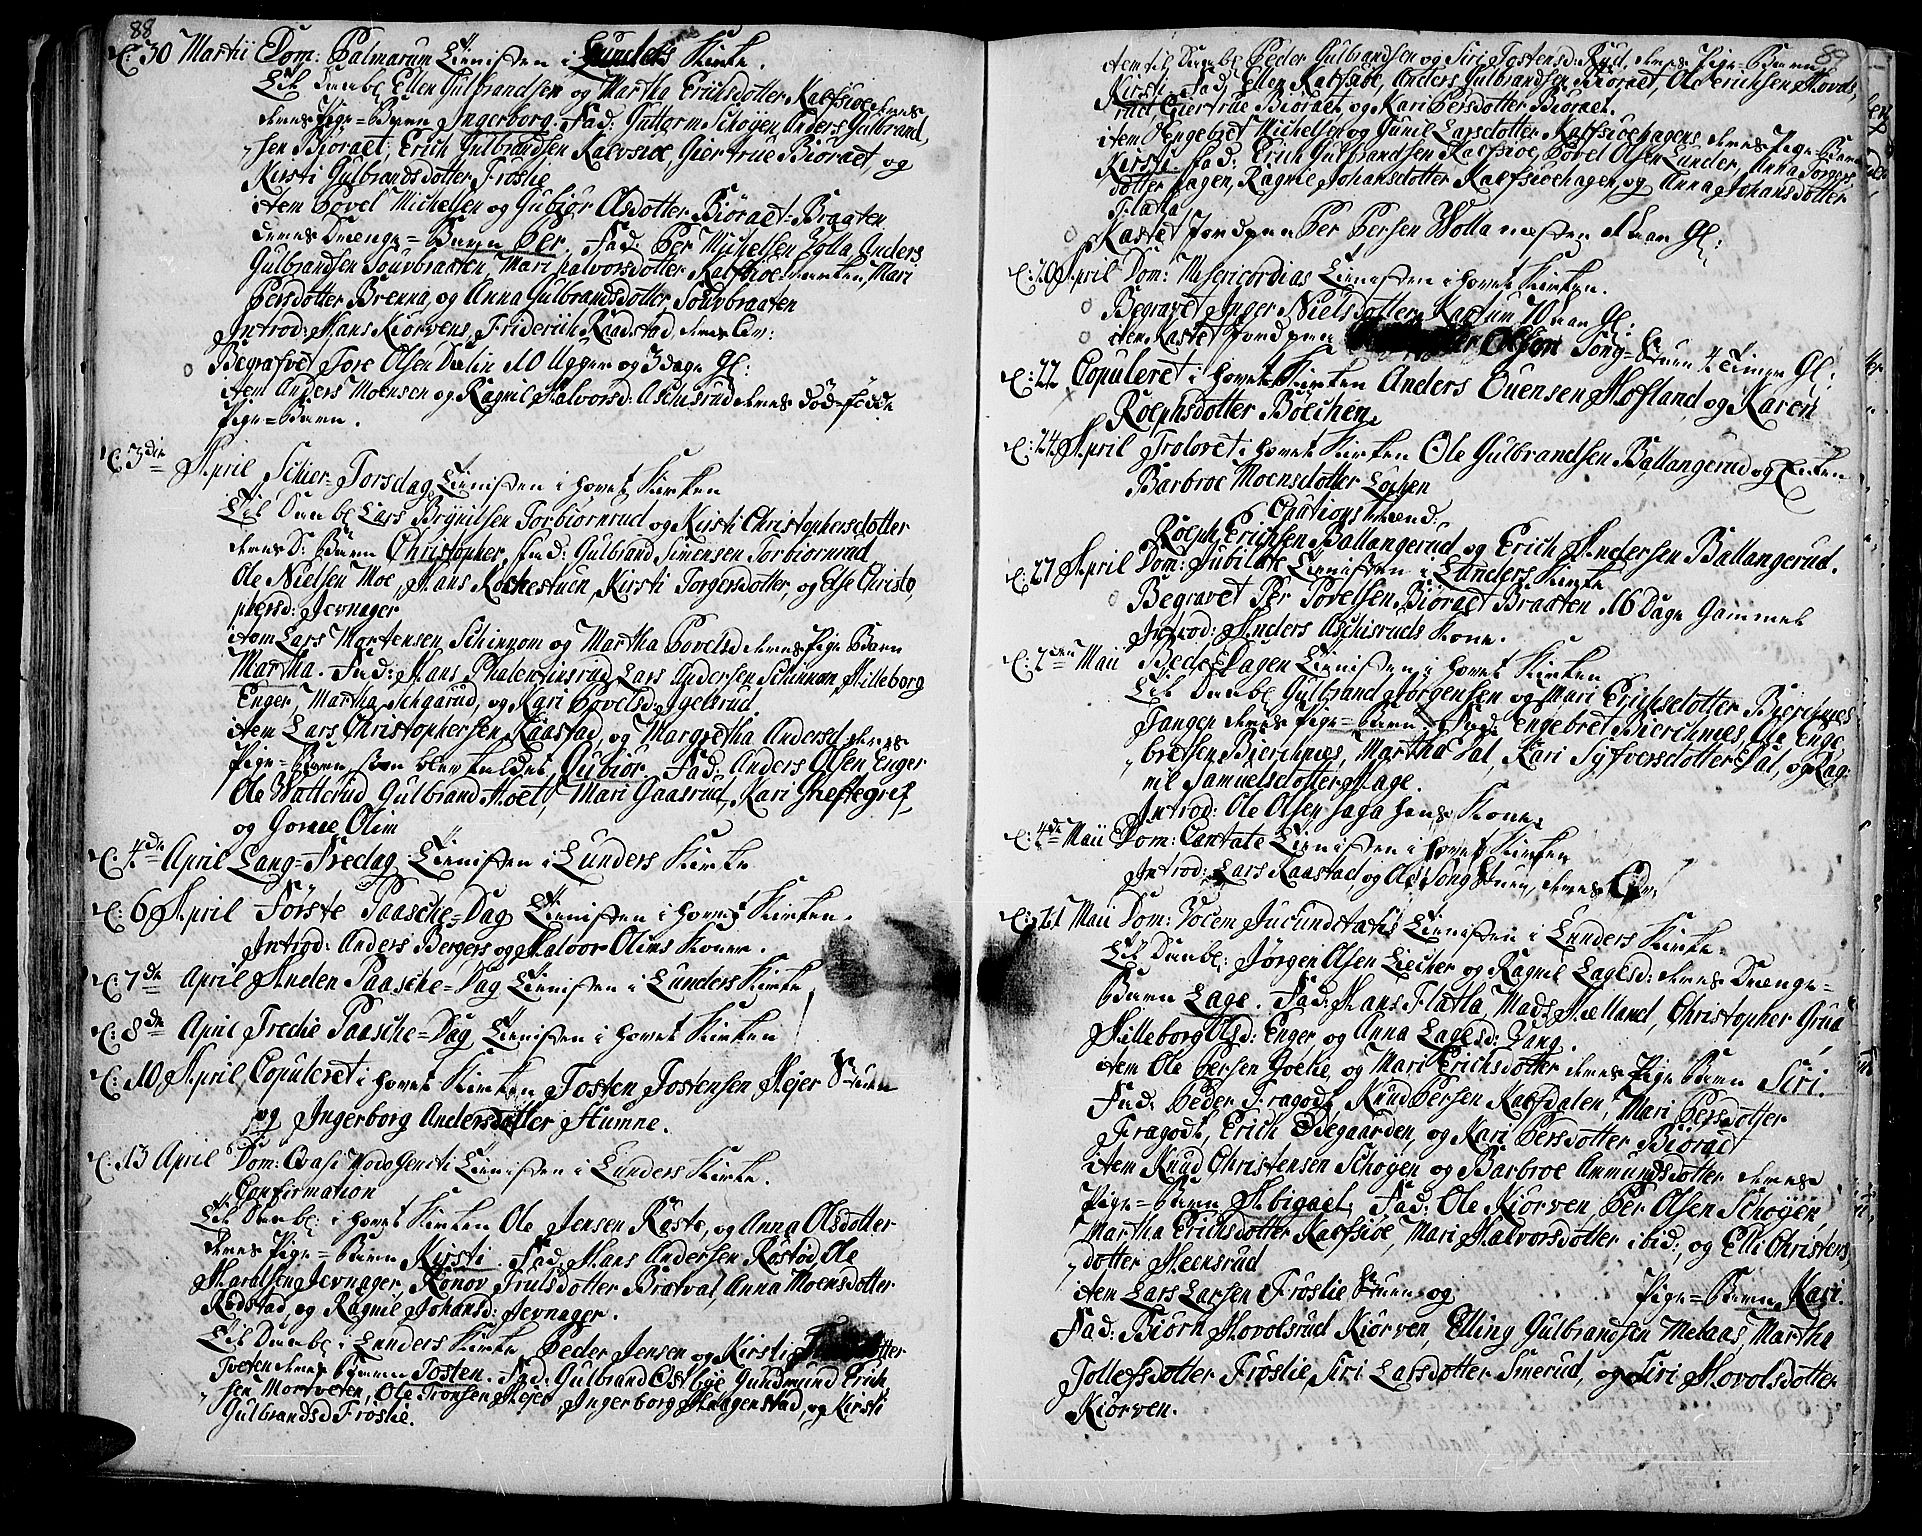 88
30 Martii Dom: Palmarum Tienisten i Lunders Kirke.
Til Daabs Ellen Gulbrandsen og Martha Erichsdotter Kalfsiøe deres
deres Pige=Barn Ingerborg. Fad: Guttorm Schøyen, Anders Gulbrand,
sen Biøraet, Erich Gulbrandsen Kalvsiøe, Giertrue Biøraet, og
Kirsti Gulbrandsdotter Frøslie
item Povel Michelsen og Gubiør Olsdotter Biøraet=Braaten
deres Drenge=Barn Per. Fad: Per Michelsen Volla, Anders
Gulbrandsen Sourbraaten, Mari Halvorsdotter Kalfsioe Marken, Mari
Persdotter Brenna, og Anna Gulbrandsdotter Sourbraaten
Introd: Hans Kiørvens, Friderich Raadstad, deres Qv:
Begrafvet Tore Olsen Dælin 10 Uger og 3 dage Gl:
item Anders Moensen og Ragnil Halvorsd: Aschisrud deres død=fødde
Pige=Barn.
3die April Schier=Torsdag, Tienisten i Hovet Kirken
Til Daabs Lars Brynilsen Torbiørnrud og Kirsti Christophersdotter
deres D: Barn Christopher, Fad: Gulbrand Simensen Torbiørnrud
Ole Nielsen Moe, Hans Kochestuen, Kirsti Torgersdotter, og Else Christo,
phersd: Jevnager
item Lars Mortensen Schinnom og Martha Povelsd deres Pige Barn
Martha. Fad: Hans Phalentinsrud, Lars Andersen Schinnom, Hilleborg
Enger, Martha Schgarud, og Kari Povelsd: Igelsrud.
item Lars Christophersen Raastad, og Margretha Andersd deres
Pige=Barn, som blev kaldet Gubiør. Fad: Anders Olsen Enger
Ole Watterud Gulbrand Moet, Mari Gaasrud, Kari Greftegref,
og Gorine Olim
4de April Lang=Fredag, Tienisten i Lunders Kirke
6 April Første Paasche=Dag Tienisten i Hovet Kirken.
Introd: Anders Bergers og Halvor Olims Koner.
7de April Anden Paasche=Dag Tienisten i Lunders Kirke
8de April Tredie Paasche=Dag, Tienisten i Hovet Kirken
10 April Copuleret i Hovet Kirken Tosten Tostensen Hejer Stuen
og Ingerborg Andersdotter Humne.
13 April Dom: Qvasi Modo Geniti Tienisten i Lunders Kirke.
Confirmation
Til Daabs i Hovet Kirken Ole Jensen Røste, og Anna Olsdotter
deres Pige=Barn Kirsti. Fad: Hans Andersen Røstød, Ole
Haralsen Jevnager, Ronov Trulsdotter Bratval, Anna Moensdotter
Rødstad, og Ragnil Johansd: Jevnager.
Til Daabs i Lunders Kirke Peder Jensen og Kirsti
Tveten deres Barn Tosten. Fad: Gulbrand Østbye, Gundmund Erich
sen Mortveten, Ole Tronsen Hejer, Ingerborg Haagenstad, og Kirsti
Gulbrandsd Frøslie.
89
item til Daabs Peder Gulbrandsen og Siri Tostensd. Rud, deres Pige=Barn
Kirsti. Fad: Ellen Kalfsiøe, Anders Gulbrandsen Biøraet, Ole Erichsen Hovds,
raet, Giertrue Biøraet, og Kari Persdotter Biøraet.
item Engebret Michelsen og Gunil Larsdotter Kalfsiøehagens deres Pige Barn
Kirsti. Fad: Erich Gulbrandsen Kalfsioe, Povel Olsen Lunder, Anna Torgers,
dotter Hagen, Ragnil Johansdotter Kalfsioehagen, og Anna Johansdotter
Flatla
Kastet Jord paa Per Persen Wolla næsten 1 aar Gl:
20 April Dom: Misericordias Tienisten i Hovet Kirken.
Begravet Inger Nielsdotter Kaxtum 70 aar Gl:
item Kastet Jord paa Olsen Song=Stuen 4 Timer Gl:
22 Copuleret i Hovet Kirken Anders Evensen Hofland og Karen
Rolphsdotter Bølchen
24 April Trolovet i Hovet Kirken Ole Gulbrandsen Ballangerud og Enken
Barbroe Moensdotter Lochen
Cautions Mænd:
Rolph Erichsen Ballangerud og Erich Andersen Ballangerud.
27 April Dom: Jubilate Tienisten i Lunders Kirke
Begravet Per Povelsen Biøraet Braaten 16 Dage Gammel
Introd: Anders Aschisruds Kone.
2den Maii Bede Dagen Tienisten i Hovet Kirken
Til Daabs Gulbrand Jørgensen og Mari Erichsdotter Bierchnes
Tangen deres Pige=Barn Fad: Engebret Bierchnes, Ole Enge,
bretsen Bierchnes, Martha Dal, Kari Syfversdotter Dal, og Rag:
nil Samuelsdotter Hage.
Introd: Ole Olsen Haga hans Kone.
4de Maii Dom: Cantate Tienisten i Hovet Kirken
Introd: Lars Raastad, og Ole Songstuen, deres Qv:
11 Maii Dom: Vocem Jucunditatis Tienisten i Lunders Kirke
Til Daabs: Jørgen Olsen Liecher og Ragnil Lagesd: deres Drenge=
Barn Lage. Fad: Hans Flatla, Mads Hælland, Christopher Grua
Hilleborg Olsd: Enger og Anna Lagesd: Vang.
item Ole Persen Goelie, og Mari Erichsdotter deres Pige Barn Siri.
Fad: Peder Fragodt, Knud Persen Kalfdalen, Mari Persdotter
Fragodt, Erich Ødegaarden, og Kari Persdotter Biøraet
item Knud Christensen Schøyen og Barbroe Ammundsdotter deres
Pige=Barn Abigael. Fad: Ole Kiørven, Per Olsen Schøyen,
Martha Erichsdotter Kalfsiøe, Mari Halvorsdotter ibid:, og Elli Christens,
dotter Heensrud
item Lars Larsen Frøslie Stuen og Pige=Barn Kari.
Fad: Biørn Hovolsrud Kiørven, Elling Gulbrandsen Melaas, Martha
Tollefsdotter Frøslie, Siri Larsdotter Smerud, og Siri Hovolsdotter
Kiørven.